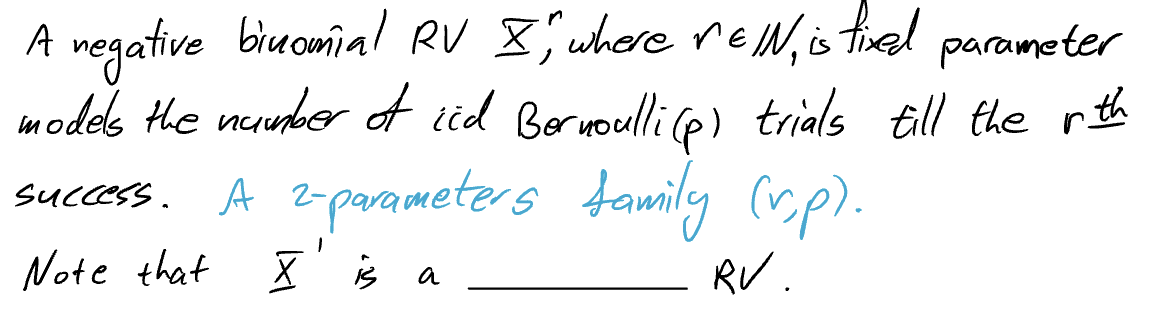 A negative binomial RV X^r, where r ∈ ℕ, is fixed parameter
models the number of iid Bernoulli(p) trials till the rth
success. A 2-parameters family (r,p).
Note that X^1 is a ________ RV.